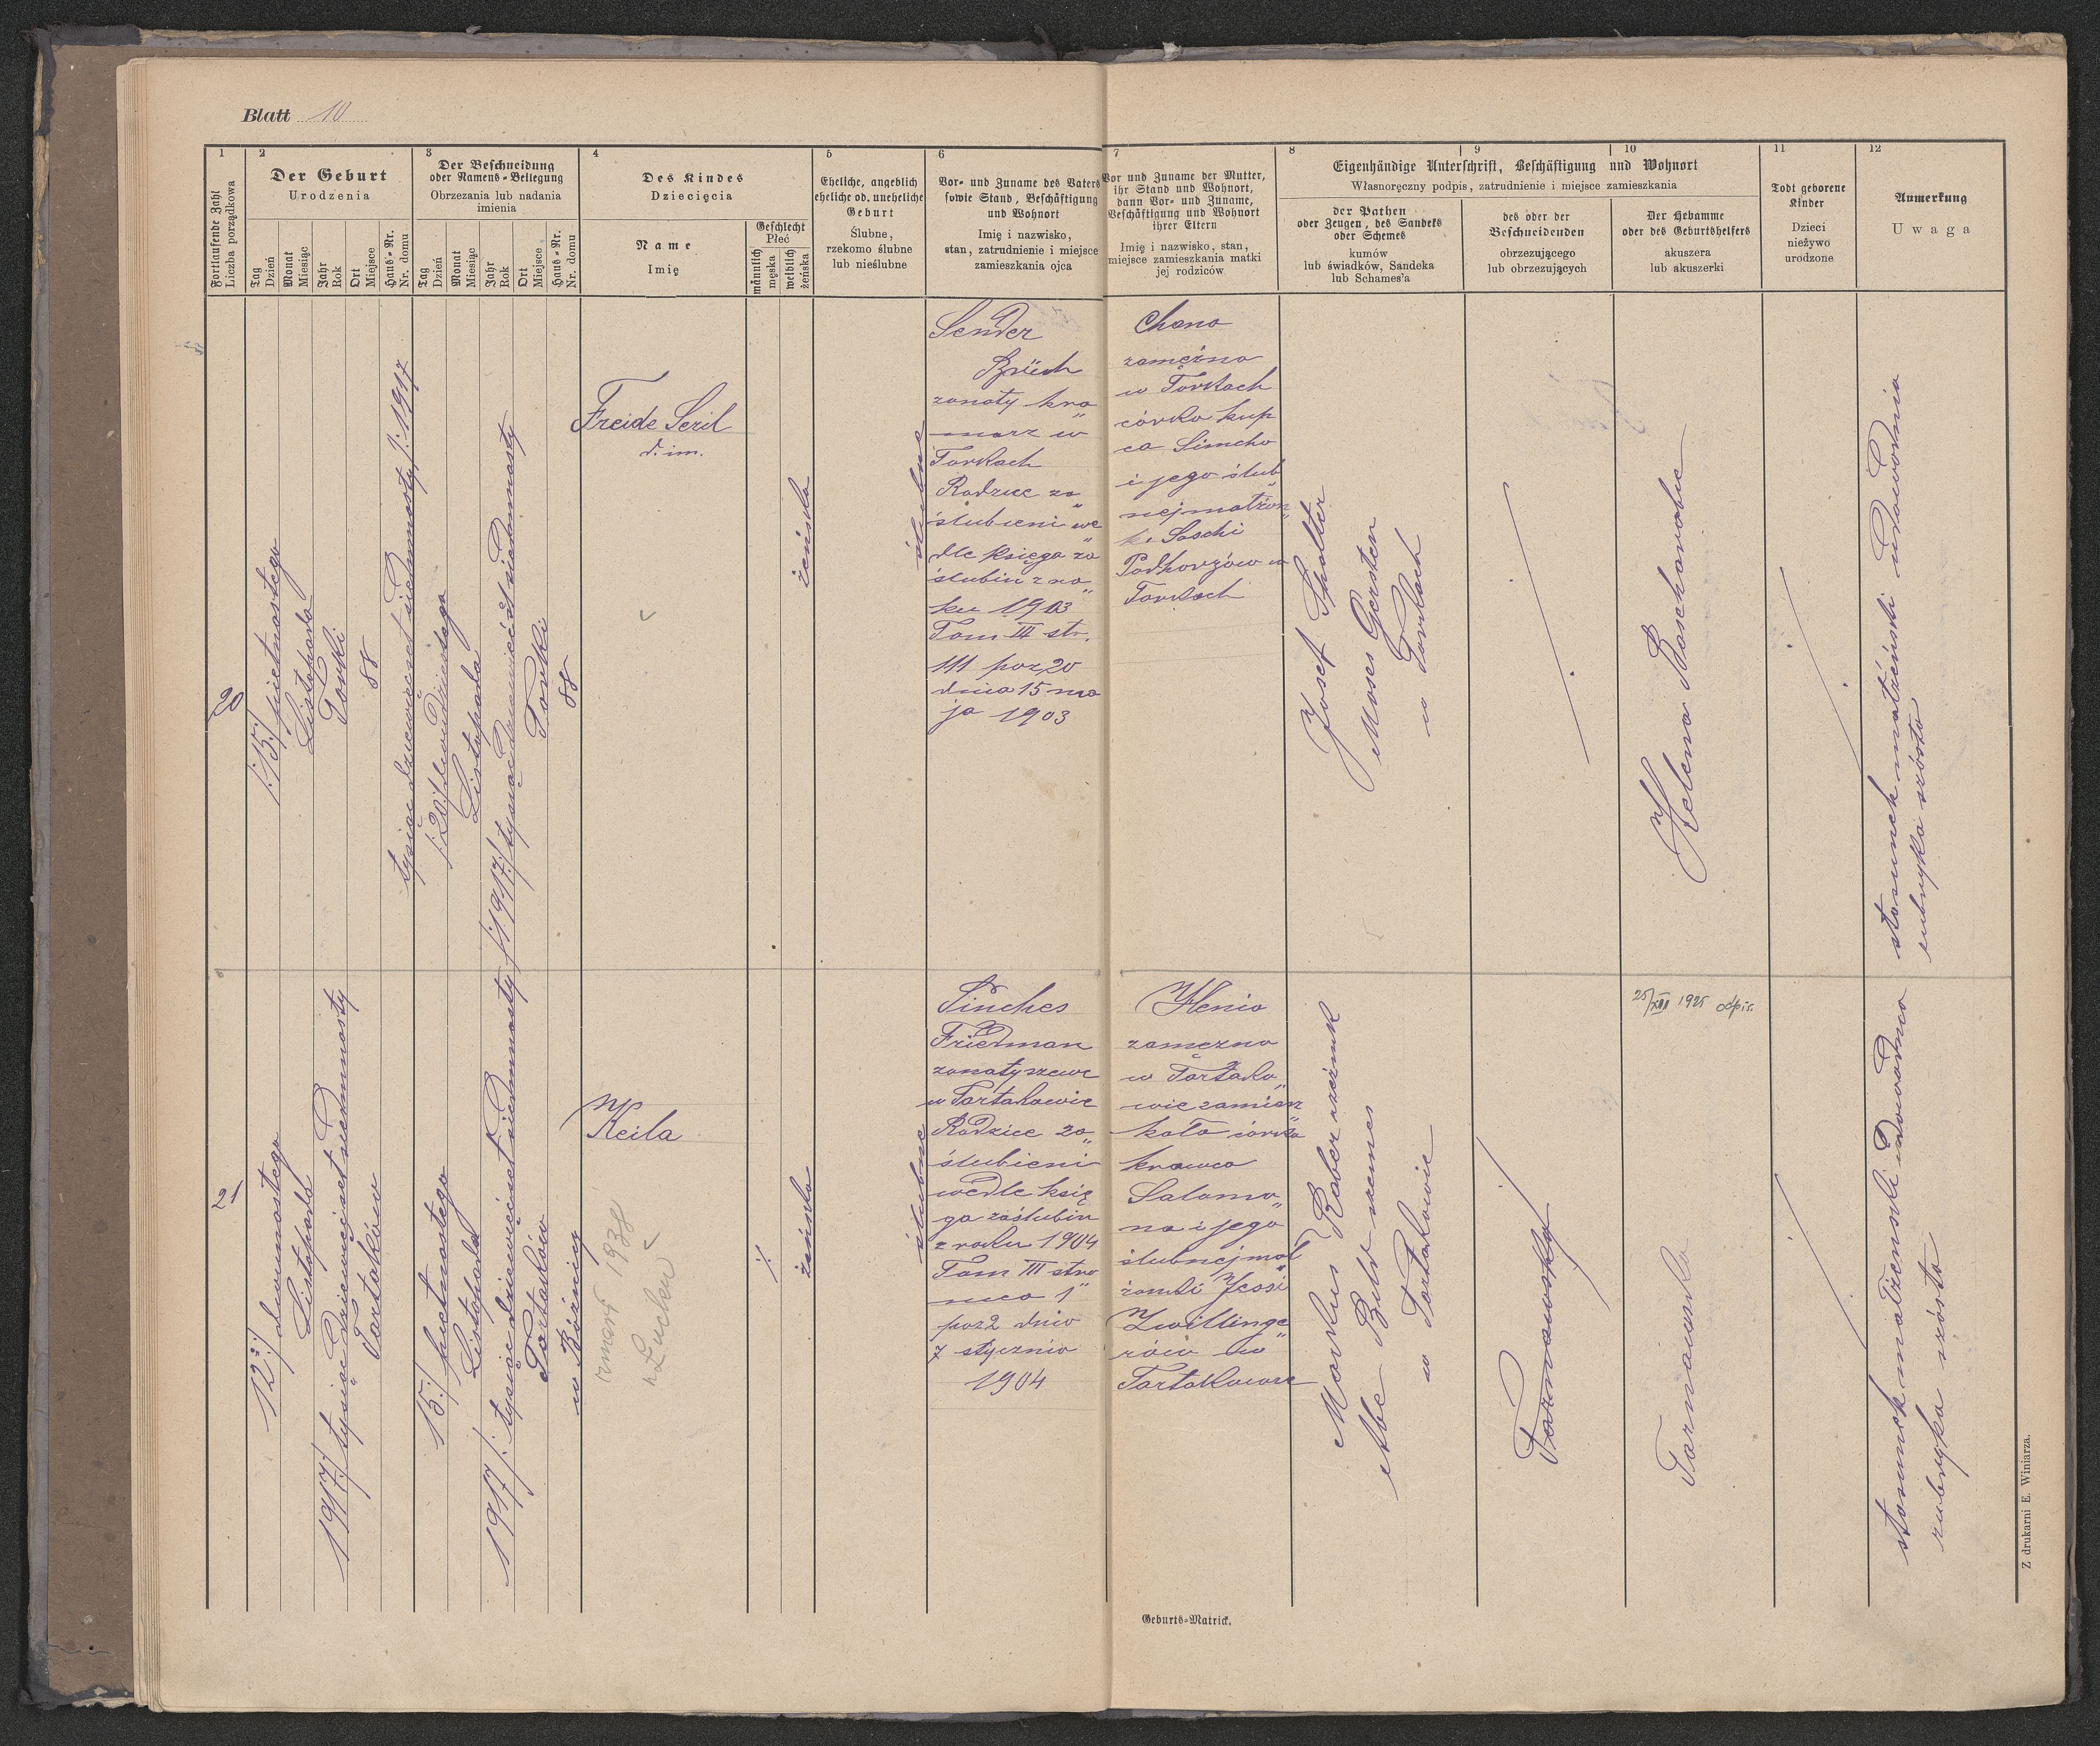 Blatt 10
1
Fortlaufende Zahl
Liczba porządkowa
2
Der Geburt
Urodzenia
Tag
Dzień
Monat
Miesiąc
Jahr
Rok
Ort
Miejsce
Haus-Nr.
Nr. domu
3
Der Beschneidung
oder Namens-Beilegung
Obrzezania lub nadania
imienia
Tag
Dzień
Monat
Miesiąc
Jahr
Rok
Ort
Miejsce
Haus-Nr.
Nr. domu
4
Des Kindes
Dziecięcia
Name
Imię
Geschlecht
Płeć
männlich
męska
weiblich
żeńska
5
Eheliche, angeblich
eheliche od. uneheliche
Geburt
Ślubne,
rzekomo ślubne
lub nieślubne
6
Vor- und Zuname des Vaters
sowie Stand, Beschäftigung
und Wohnort
Imię i nazwisko,
stan, zatrudnienie i miejsce
zamieszkania ojca
7
Vor und Zuname der Mutter,
ihr Stand und Wohnort,
dann Vor- und Zuname,
Beschäftigung und Wohnort
ihrer Eltern
Imię i nazwisko, stan,
miejsce zamieszkania matki
jej rodziców
Eigenhändige Unterschrift, Beschäftigung und Wohnort
Własnoręczny podpis, zatrudnienie i miejsce zamieszkania
8
der Pathen
oder Zeugen, des Sandeks
oder Schemes
kumów
lub świadków, Sandeka
lub Schames'a
9
des oder der
Beschneidenden
obrzezującego
lub obrzezujących
10
Der Hebamme
oder des Geburtshelfers
akuszera
lub akuszerki
11
Todt geborene
Kinder
Dzieci
nieżywo
urodzone
12
Anmerkung
Uwaga
20
/:15:/ piętnastego
Listopada
Torki
88
tysiąc dziewięćset siedmnasty /:1917
/:20:/ dwudziestego
Listopada
/:1917:/ tysiąc dziewięćset siedemnasty
Torki
88
Freide Seril
d. im.
żeńska
ślubne
Sender
Brüch
żonaty kra
marz w
Torkach
Rodzice za
ślubieni we
dle księga za
ślubin z ro
ku 1903
Tom III str.
111 poz 20
dnia 15 ma
ja 1903
Chana
zamężna
w Torkach
córka kup
ca Simcha
i jego ślub
nej małżon
ki Saschi
Podhorzów w
Torkach
Josef Spalter
Moses Gersten
w Torkach
Helena Boscharobe
stosunek małżeński udowodnia
rubryka szósta
21
12:/ dwunastego
Listopada
1917:/ tysiąc dziewięćset siedmnasty
Tartaków
15:/ piętnastego
Listopada
1917 /: tysiąc dziewięćset siedmnasty
Tartaków
w Bóżnicy
Keila
zmarł 1938
w Lucku
ż
żeńska
ślubne
Pinches
Friedman
żonaty szewc
w Tartakowie
Rodzice za
ślubieni
wedle księ
ga zaślubin
z roku 1904
Tom III stro
nica 1
poz 2 dnia
7 stycznia
1904
Henia
zamężna
w Tartako
wie zamiesz
kała córka
krawca
Salamo
na i jego
ślubnej mał
żonki Jessi
Zwillinge
rów w
Tartakowie
Markus Raber rzeźnik
Abe Butz szames
w Tartakowie
Tarnawska
25/XII 1925 odpis.
Tarnawska
stosunek małżeński udowodnia
rubryka szósta
Geburts-Matrick.
Z drukarni E. Winiarza.